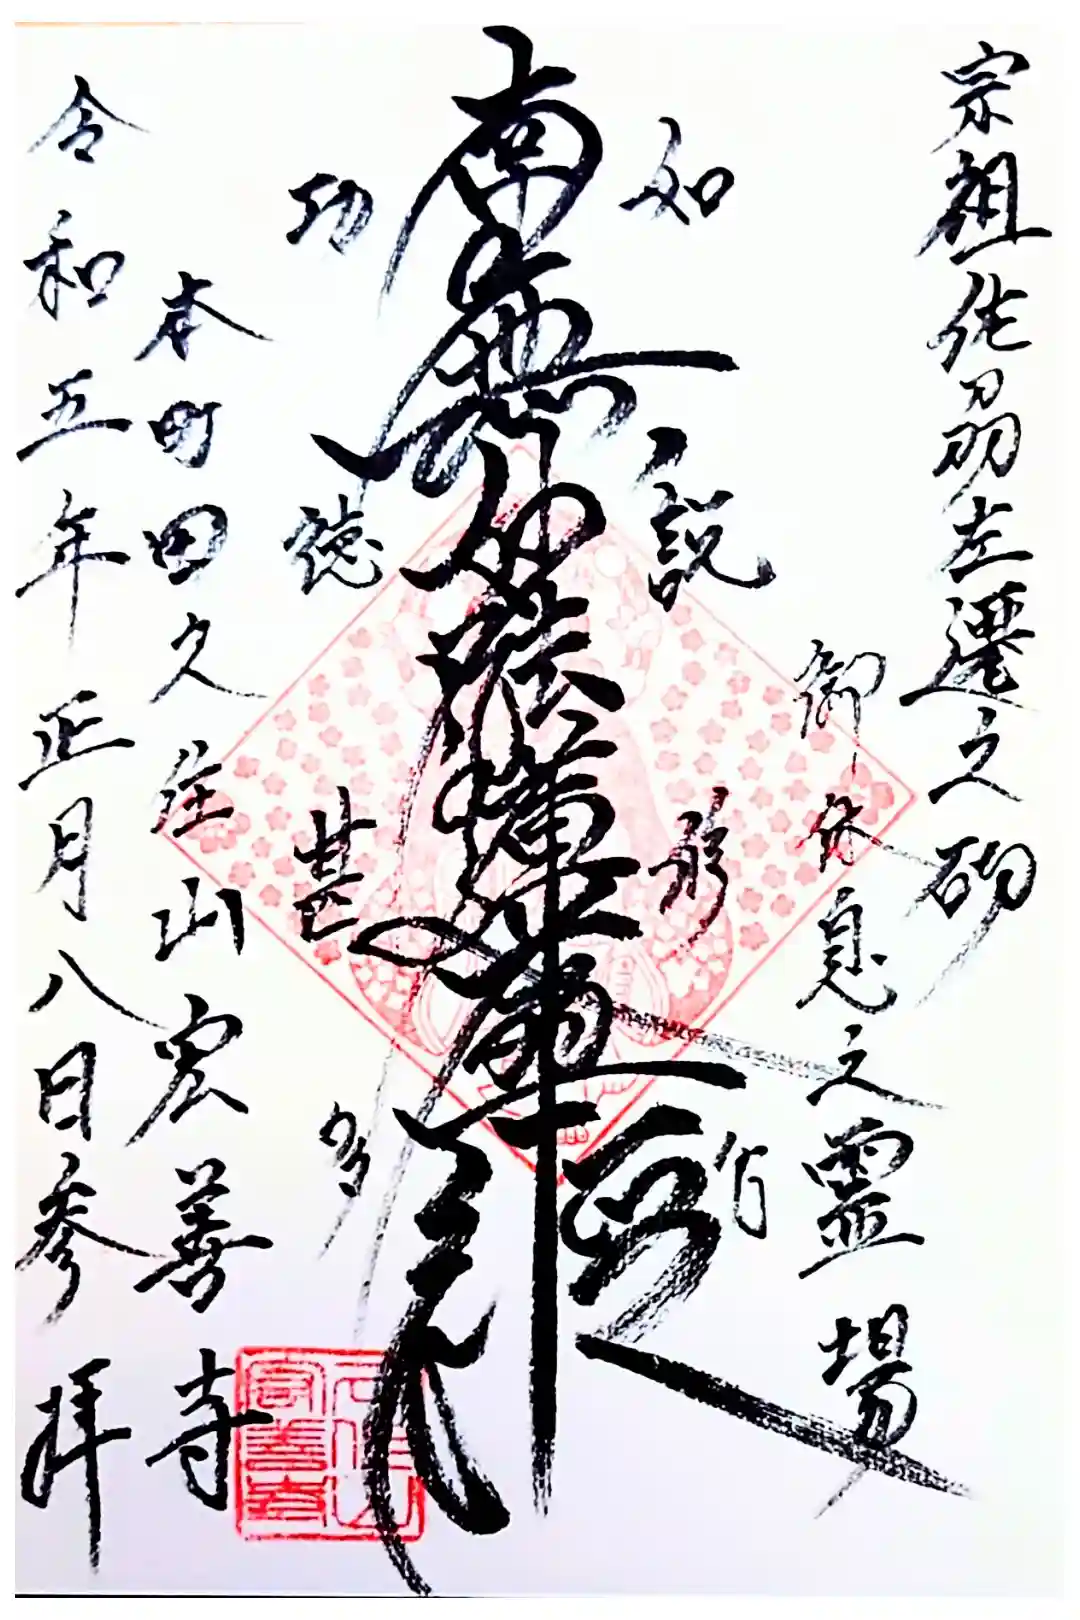 宗祖佐刕左遷之砌
御休息之霊場
如説修行
南無妙法蓮華経
功徳甚多
本町田久住山宏善寺
令和五年正月八日参拝
宏善寺